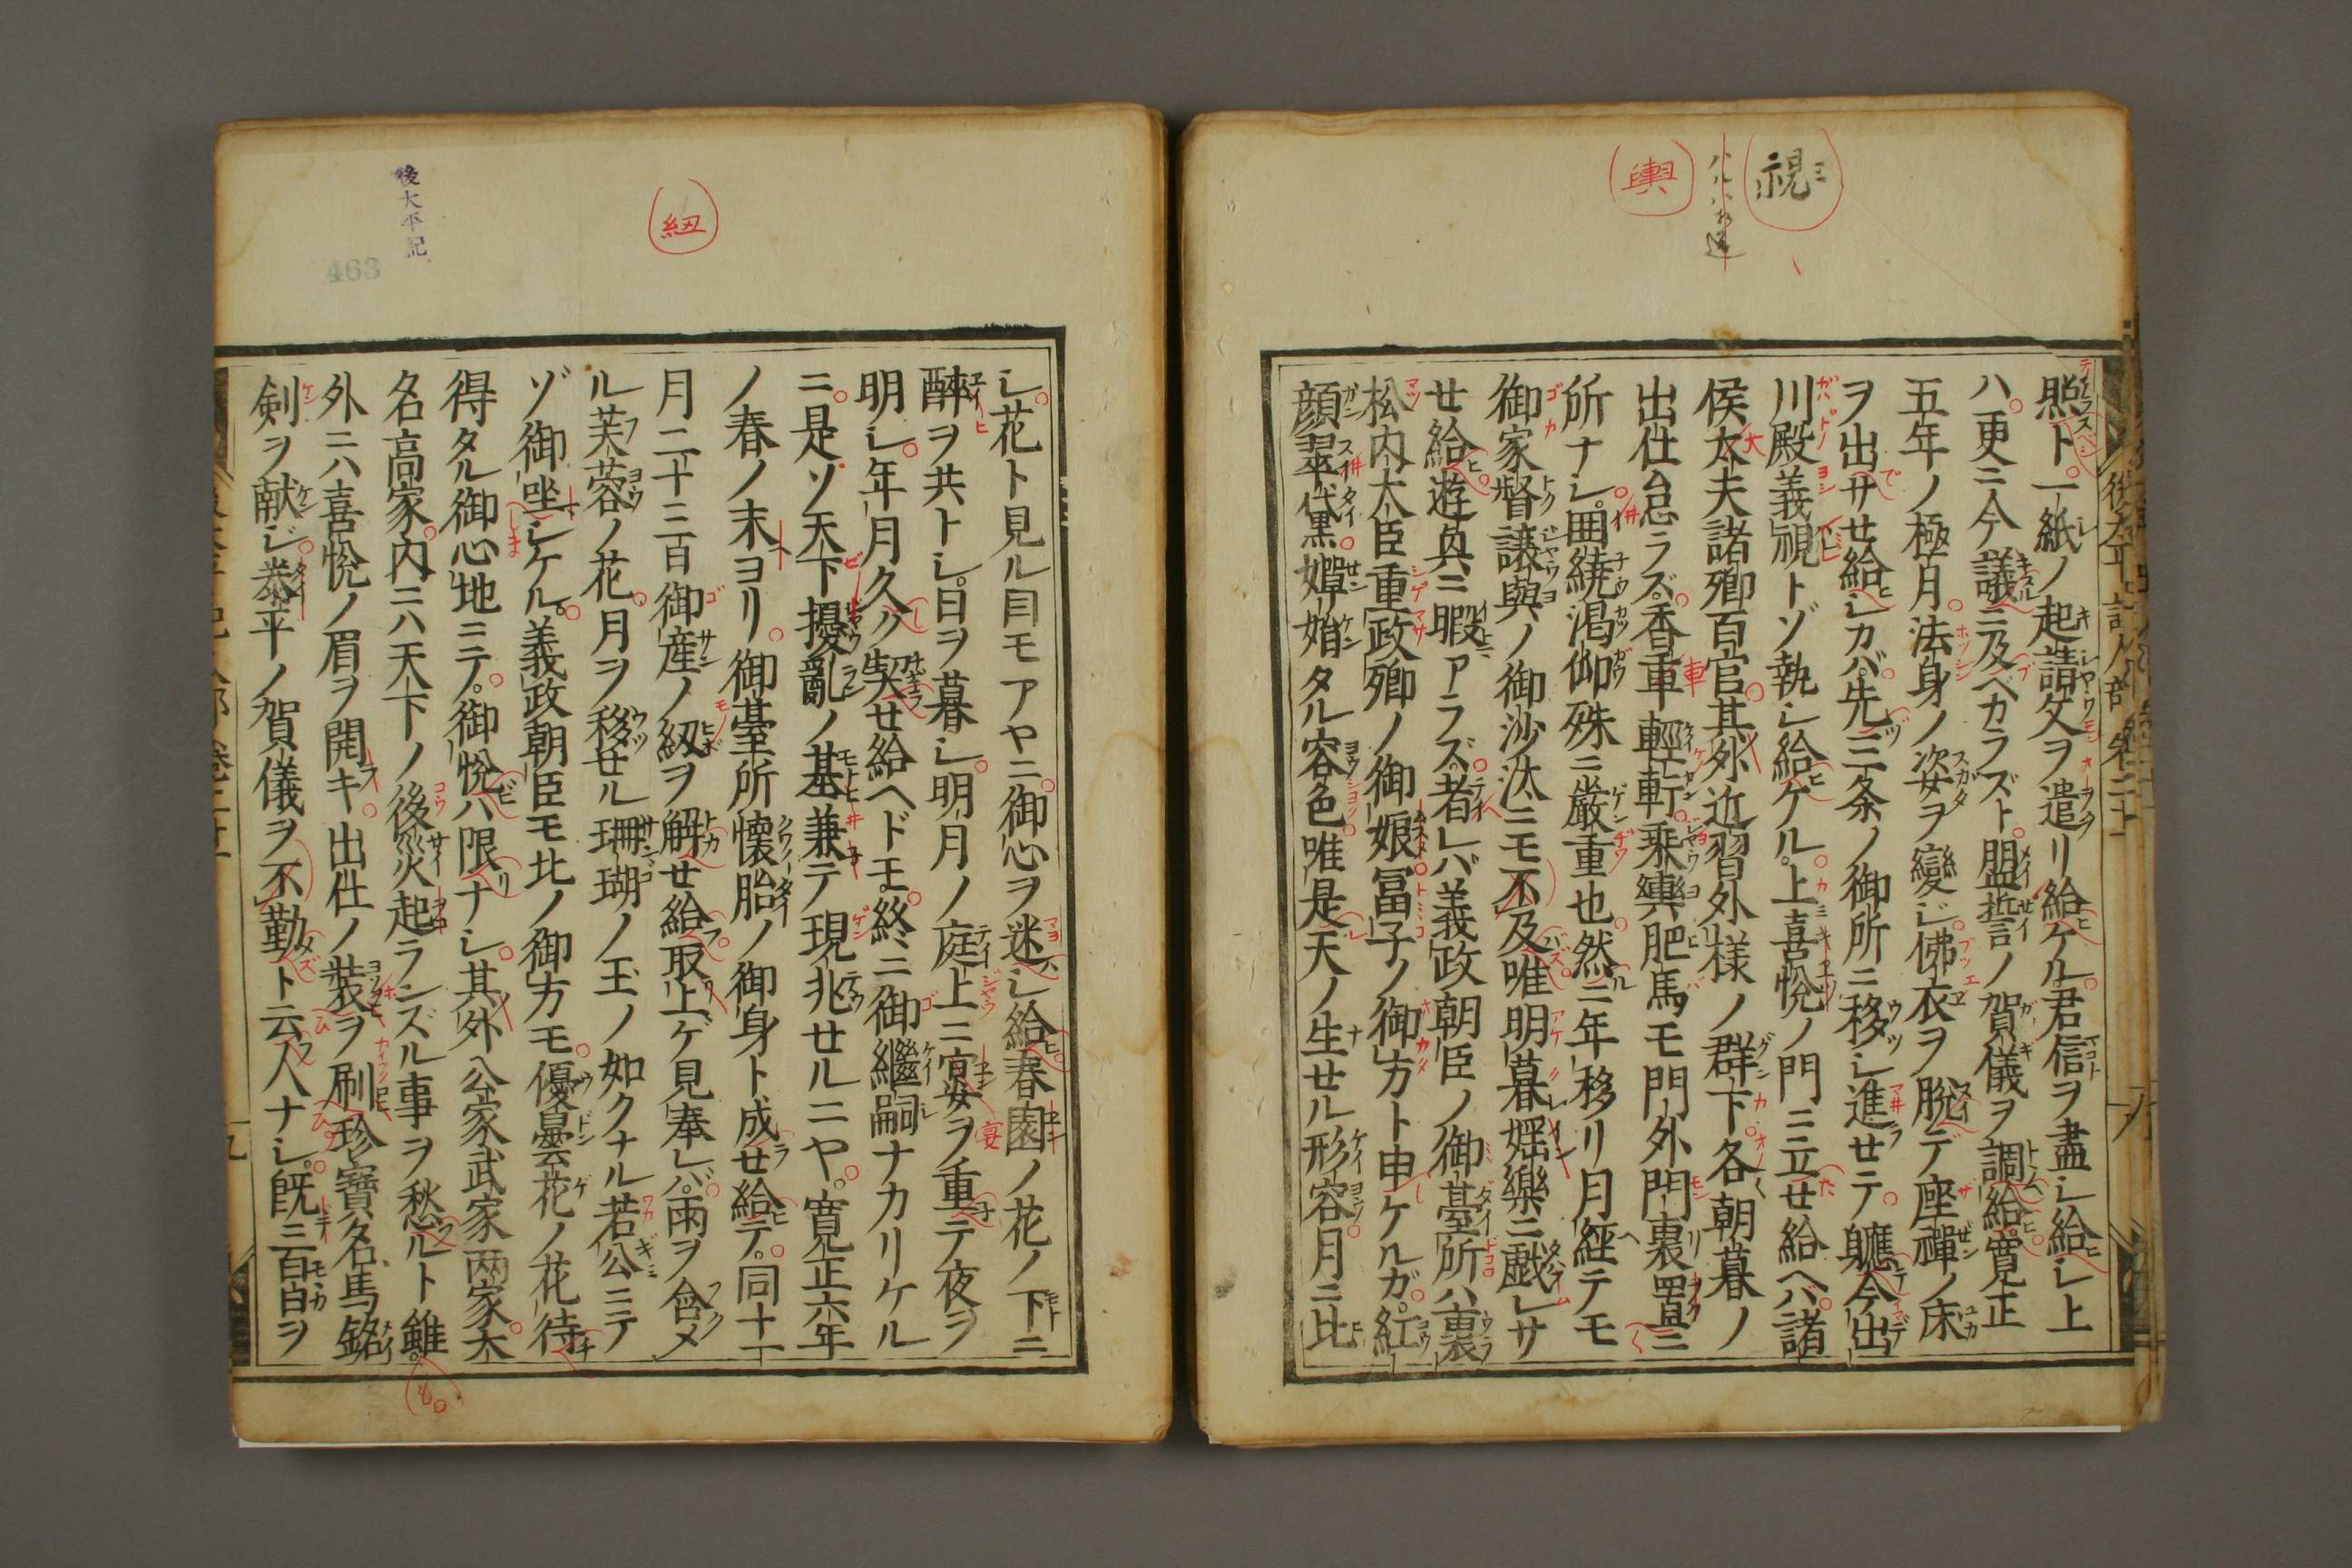 視
ミ
輿
照ト一紙ノ起請文ヲ遣リ給ケル君信ヲ盡シ給シ上
ハ更ニ今議ニ及ベカラズト盟誓ノ賀儀ヲ調給寛正
五年ノ極月法身ノ姿ヲ變ジ佛衣ヲ脱デ座禪ノ床
ヲ出サセ給シカバ先三条ノ御所ニ移シ進セテ軈今出
川殿義視トゾ執シ給ケル上喜悦ノ門ニ立セ給ヘバ諸
侯太夫諸卿百官其外近習外様ノ群下各朝暮ノ
出仕怠ラズ香車輕軒乗輿肥馬モ門外門裏置ニ
所ナシ囲繞渇仰殊ニ厳重也然ニ年移リ月経テモ
御家督譲與ノ御沙汰ニモ不及唯明暮婬樂ニ戯レサ
セ給遊興ニ暇アラズ者レバ義政朝臣ノ御臺所ハ重裏
松内大臣重政卿ノ御娘冨子ノ御方ト申ケルガ紅
顔翠黛嬋娟タル容色唯是天ノ生セル形容月ニ比
紐
後太平記
463
シ花ト見ル目モアヤニ御心ヲ迷シ給春園ノ花ノ下ニ
醉ヲ共トシ日ヲ暮シ明月ノ庭上ニ宴ヲ重テ夜ヲ
明シ年月久ク契セ給ヘドモ終ニ御繼嗣ナカリケル
ニ是ソ天下擾亂ノ基兼テ現兆セルニヤ寛正六年
ノ春ノ末ヨリ御臺所懐胎ノ御身ト成セ給テ同十一
月二十三日御産ノ紐ヲ解セ給取上ゲ見奉レバ雨ヲ含メ
ル芙蓉ノ花月ヲ移セル珊瑚ノ玉ノ如クナル若公ニテ
ゾ御坐シケル義政朝臣モ北ノ御方モ優曇花ノ花待
得タル御心地ニテ御悦ハ限ナシ其外公家武家両家大
名高家内ニハ天下ノ後災起ランズル事ヲ愁ルト雖
外ニハ喜悦ノ眉ヲ開キ出仕ノ装ヲ刷珍寶名馬銘
剣ヲ献ジ泰平ノ賀儀ヲ不勤ト云人ナシ既三百日ヲ